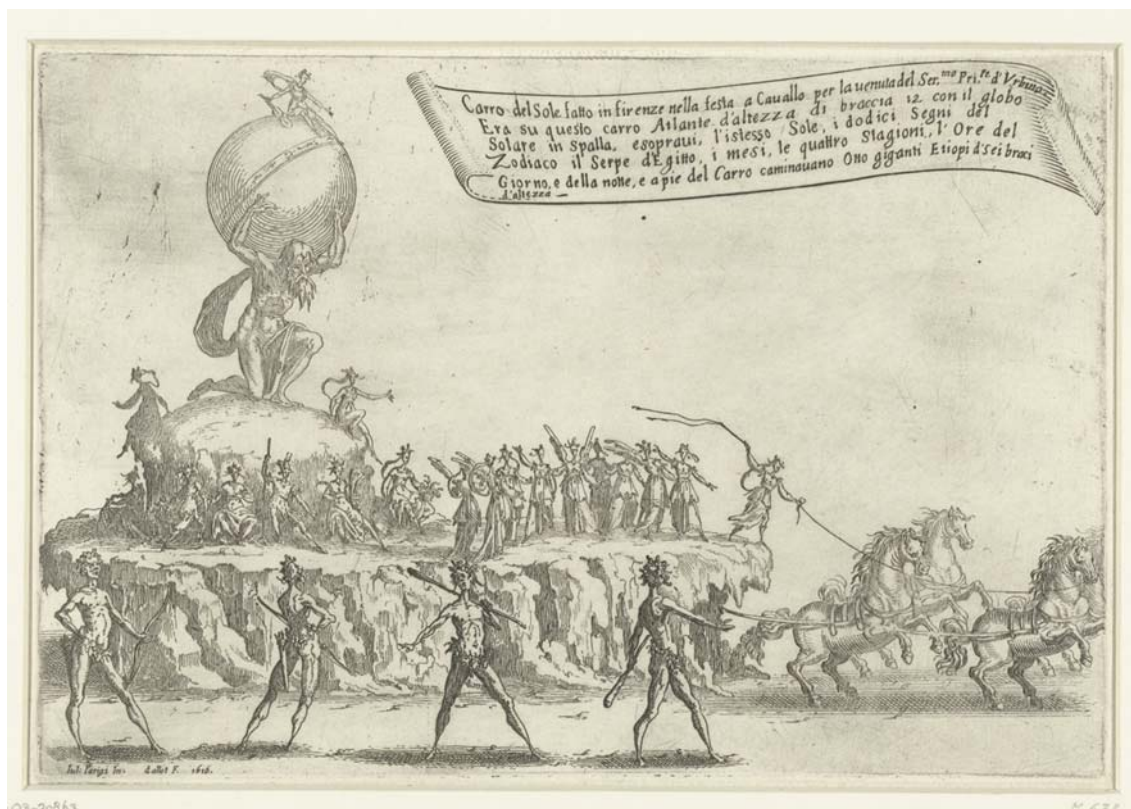 Carro del Sole fatto in firenze nella festa a Cauallo per la uenuta del Ser.mo Pri.pe d'Vrbino:
Era su questo carro Atlante d'altezza di braccia 12 con il globo
Solare in Spalla, esoprauj, l'istesso Sole, i dodici Segni del
Zodiaco il Serpe d'Egitto, i mesi, le quattro Stagioni, l'Ore del
Giorno, e della notte, e a pie del Carro caminauano Otto giganti Etiopi d'sei bracj
d'altezza
Iul. Parigi In. Callot F. 1616.
03-20863